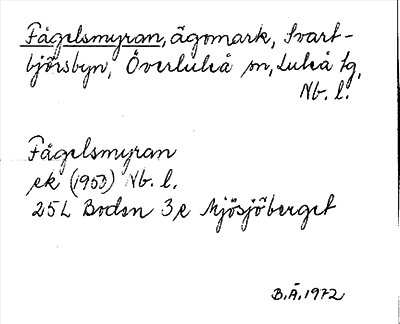 Fågelsmyran, ägomark, Svart-
björsbyn, Överluleå sn, Luleå tg,
Nb. l.
Fågelsmyran
ek (1950) Nb. l.
25L Boden 3e Mjösjöberget
B.Ä. 1972